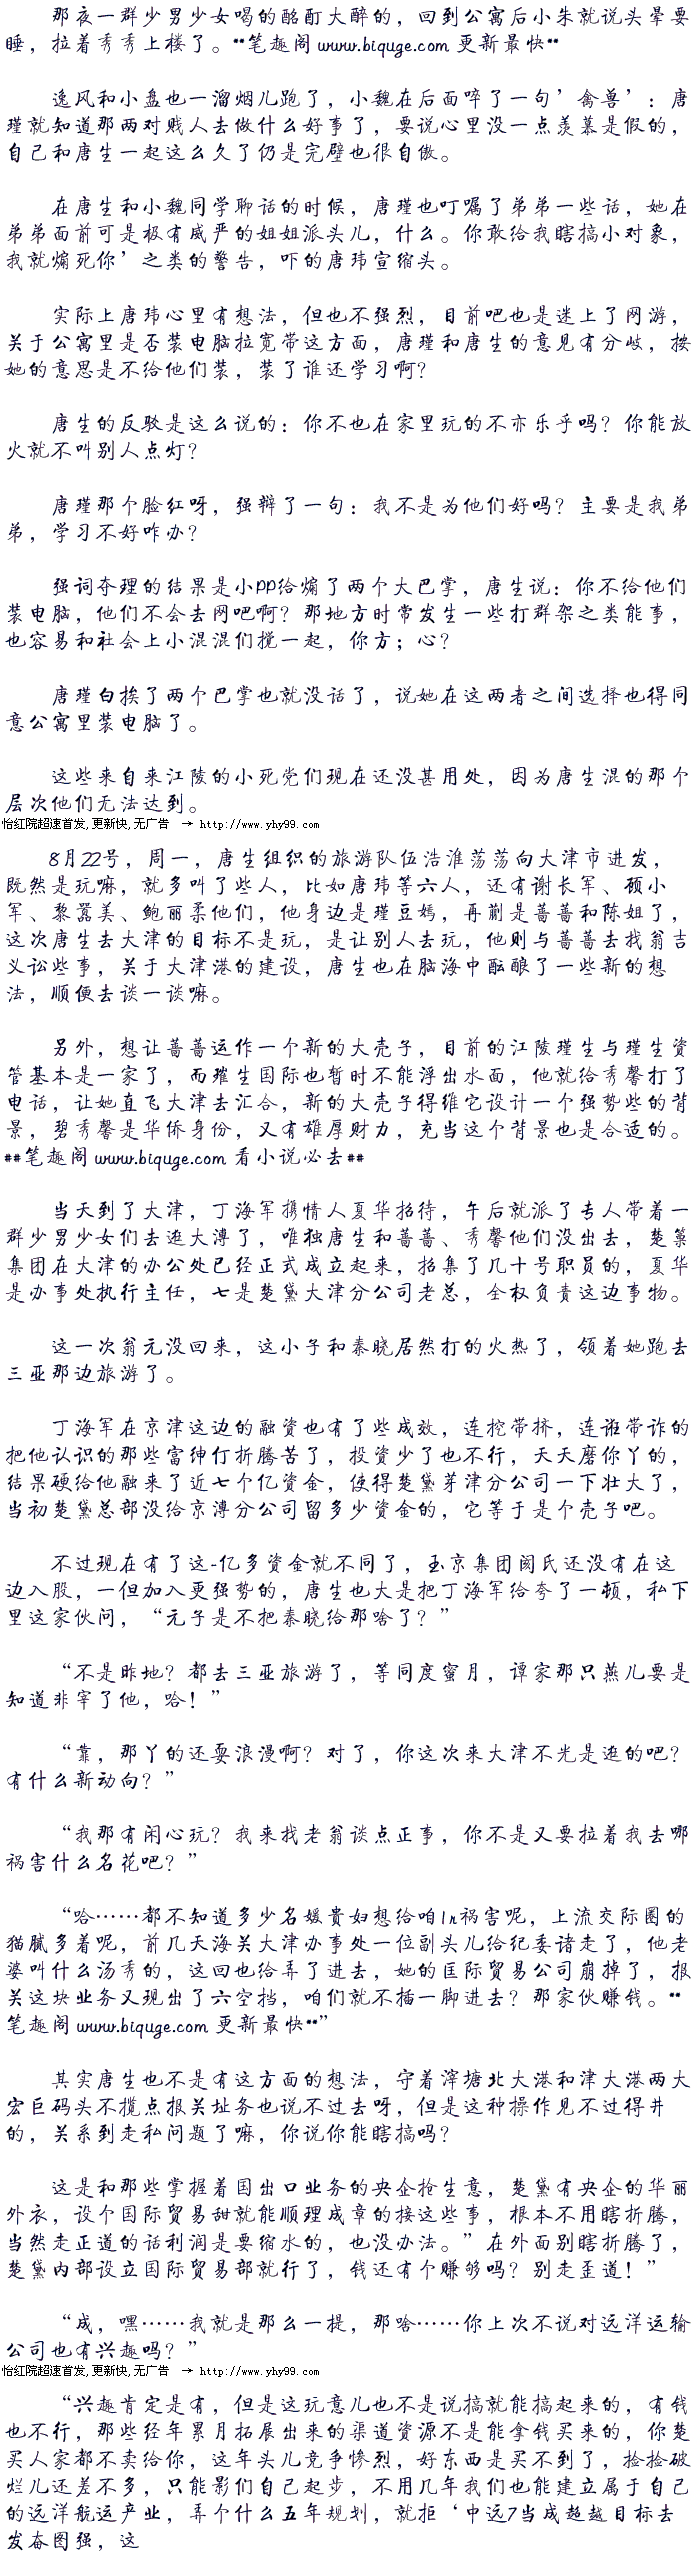 那夜一群少男少女喝的酩酊大醉的，回到公寓后小朱就说头晕要
睡，拉着秀秀上楼了。**笔趣阁 www.biquge.com 更新最快**
逸风和小盘也一溜烟儿跑了，小魏在后面啐了一句’禽兽’：唐
瑾就知道那两对贱人去做什么好事了，要说心里没一点羡慕是假的，
自己和唐生一起这么久了仍是完壁也很自傲。
在唐生和小魏同学聊话的时候，唐瑾也叮嘱了弟弟一些话，她在
弟弟面前可是极有威严的姐姐派头儿，什么。你敢给我瞎搞小对象，
我就煽死你’之类的警告，吓的唐玮宣缩头。
实际上唐玮心里有想法，但也不强烈，目前吧也是迷上了网游，
关于公寓里是否装电脑拉宽带这方面，唐瑾和唐生的意见有分岐，按
她的意思是不给他们装，装了谁还学习啊？
唐生的反驳是这么说的：你不也在家里玩的不亦乐乎吗？你能放
火就不叫别人点灯？
唐瑾那个脸红呀，强辩了一句：我不是为他们好吗？主要是我弟
弟，学习不好咋办？
强词夺理的结果是小PP给煽了两个大巴掌，唐生说：你不给他们
装电脑，他们不会去网吧啊？那地方时常发生一些打群架之类能事，
也容易和社会上小混混们搅一起，你方；心？
唐瑾白挨了两个巴掌也就没话了，说她在这两者之间选择也得同
意公寓里装电脑了。
这些来自来江陵的小死党们现在还没甚用处，因为唐生混的那个
层次他们无法达到。
怡红院超速首发,更新快,无广告 → http://www.yhy99.com
8月22号，周一，唐生组织的旅游队伍浩淮荡荡向大津市进发，
既然是玩嘛，就多叫了些人，比如唐玮等六人，还有谢长军、顾小
军、黎嚣美、鲍丽柔他们，他身边是瑾豆嫣，再蒯是蔷蔷和陈姐了，
这次唐生去大津的目标不是玩，是让别人去玩，他则与蔷蔷去找翁吉
义讼些事，关于大津港的建设，唐生也在脑海中酝酿了一些新的想
法，顺便去谈一谈嘛。
另外，想让蔷蔷运作一个新的大壳子，目前的江陵瑾生与瑾生资
管基本是一家了，而璀生国际也暂时不能浮出水面，他就给秀馨打了
电话，让她直飞大津去汇合，新的大壳子得维它设计一个强势些的背
景，碧秀馨是华侨身份，又有雄厚财力，充当这个背景也是合适的。
##笔趣阁 www.biquge.com 看小说必去##
当天到了大津，丁海军携情人夏华招待，午后就派了专人带着一
群少男少女们去逛大溥了，唯独唐生和蔷蔷、秀馨他们没出去，楚箓
集团在大津的办公处已经正式成立起来，招集了几十号职员的，夏华
是办事处执行主任，七是楚黛大津分公司老总，全权负责这边事物。
这一次翁元没回来，这小子和秦晓居然打的火热了，领着她跑去
三亚那边旅游了。
丁海军在京津这边的融资也有了些成效，连挖带挤，连诳带诈的
把他认识的那些富绅仃折腾苦了，投资少了也不行，天天磨你丫的，
结果硬给他融来了近七个亿资金，使得楚黛芽津分公司一下壮大了，
当初楚黛总部没给京溥分公司留多少资金的，它等于是个壳子吧。
不过现在有了这-亿多资金就不同了，玉京集团阂氏还没有在这
边入股，一但加入更强势的，唐生也大是把丁海军给夸了一顿，私下
里这家伙问，“元子是不把秦晓给那啥了？”
“不是昨地？都去三亚旅游了，等同度蜜月，谭家那只燕儿要是
知道非宰了他，哈！”
“靠，那丫的还耍浪漫啊？对了，你这次来大津不光是逛的吧？
有什么新动向？”
“我那有闲心玩？我来找老翁谈点正事，你不是又要拉着我去哪
祸害什么名花吧？”
“哈……都不知道多少名媛贵妇想给咱1n祸害呢，上流交际圈的
猫腻多着呢，前几天海关大津办事处一位副头儿给纪委诸走了，他老
婆叫什么汤秀的，这回也给弄了进去，她的匡际贸易公司崩掉了，报
关这块业务又现出了六空挡，咱们就不插一脚进去？那家伙赚钱。**
笔趣阁 www.biquge.com 更新最快**”
其实唐生也不是有这方面的想法，守着滓塘北大港和津大港两大
宏巨码头不揽点报关址务也说不过去呀，但是这种操作见不过得井
的，关系到走私问题了嘛，你说你能瞎搞吗？
这是和那些掌握着国出口业务的央企抢生意，楚黛有央企的华丽
外衣，设个国际贸易甜就能顺理成章的接这些事，根本不用瞎折腾，
当然走正道的话利润是要缩水的，也没办法。”在外面别瞎折腾了，
楚黛内部设立国际贸易部就行了，钱还有个赚够吗？别走歪道！”
“成，嘿……我就是那么一提，那啥……你上次不说对远洋运输
公司也有兴趣吗？”
怡红院超速首发,更新快,无广告 → http://www.yhy99.com
“兴趣肯定是有，但是这玩意儿也不是说搞就能搞起来的，有钱
也不行，那些经年累月拓展出来的渠道资源不是能拿钱买来的，你楚
买人家都不卖给你，这年头儿竞争惨烈，好东西是买不到了，捡捡破
烂儿还差不多，只能影们自己起步，不用几年我们也能建立属于自己
的远洋航运产业，弄个什么五年规划，就拒‘中远7当成超越目标去
发奋图强，这